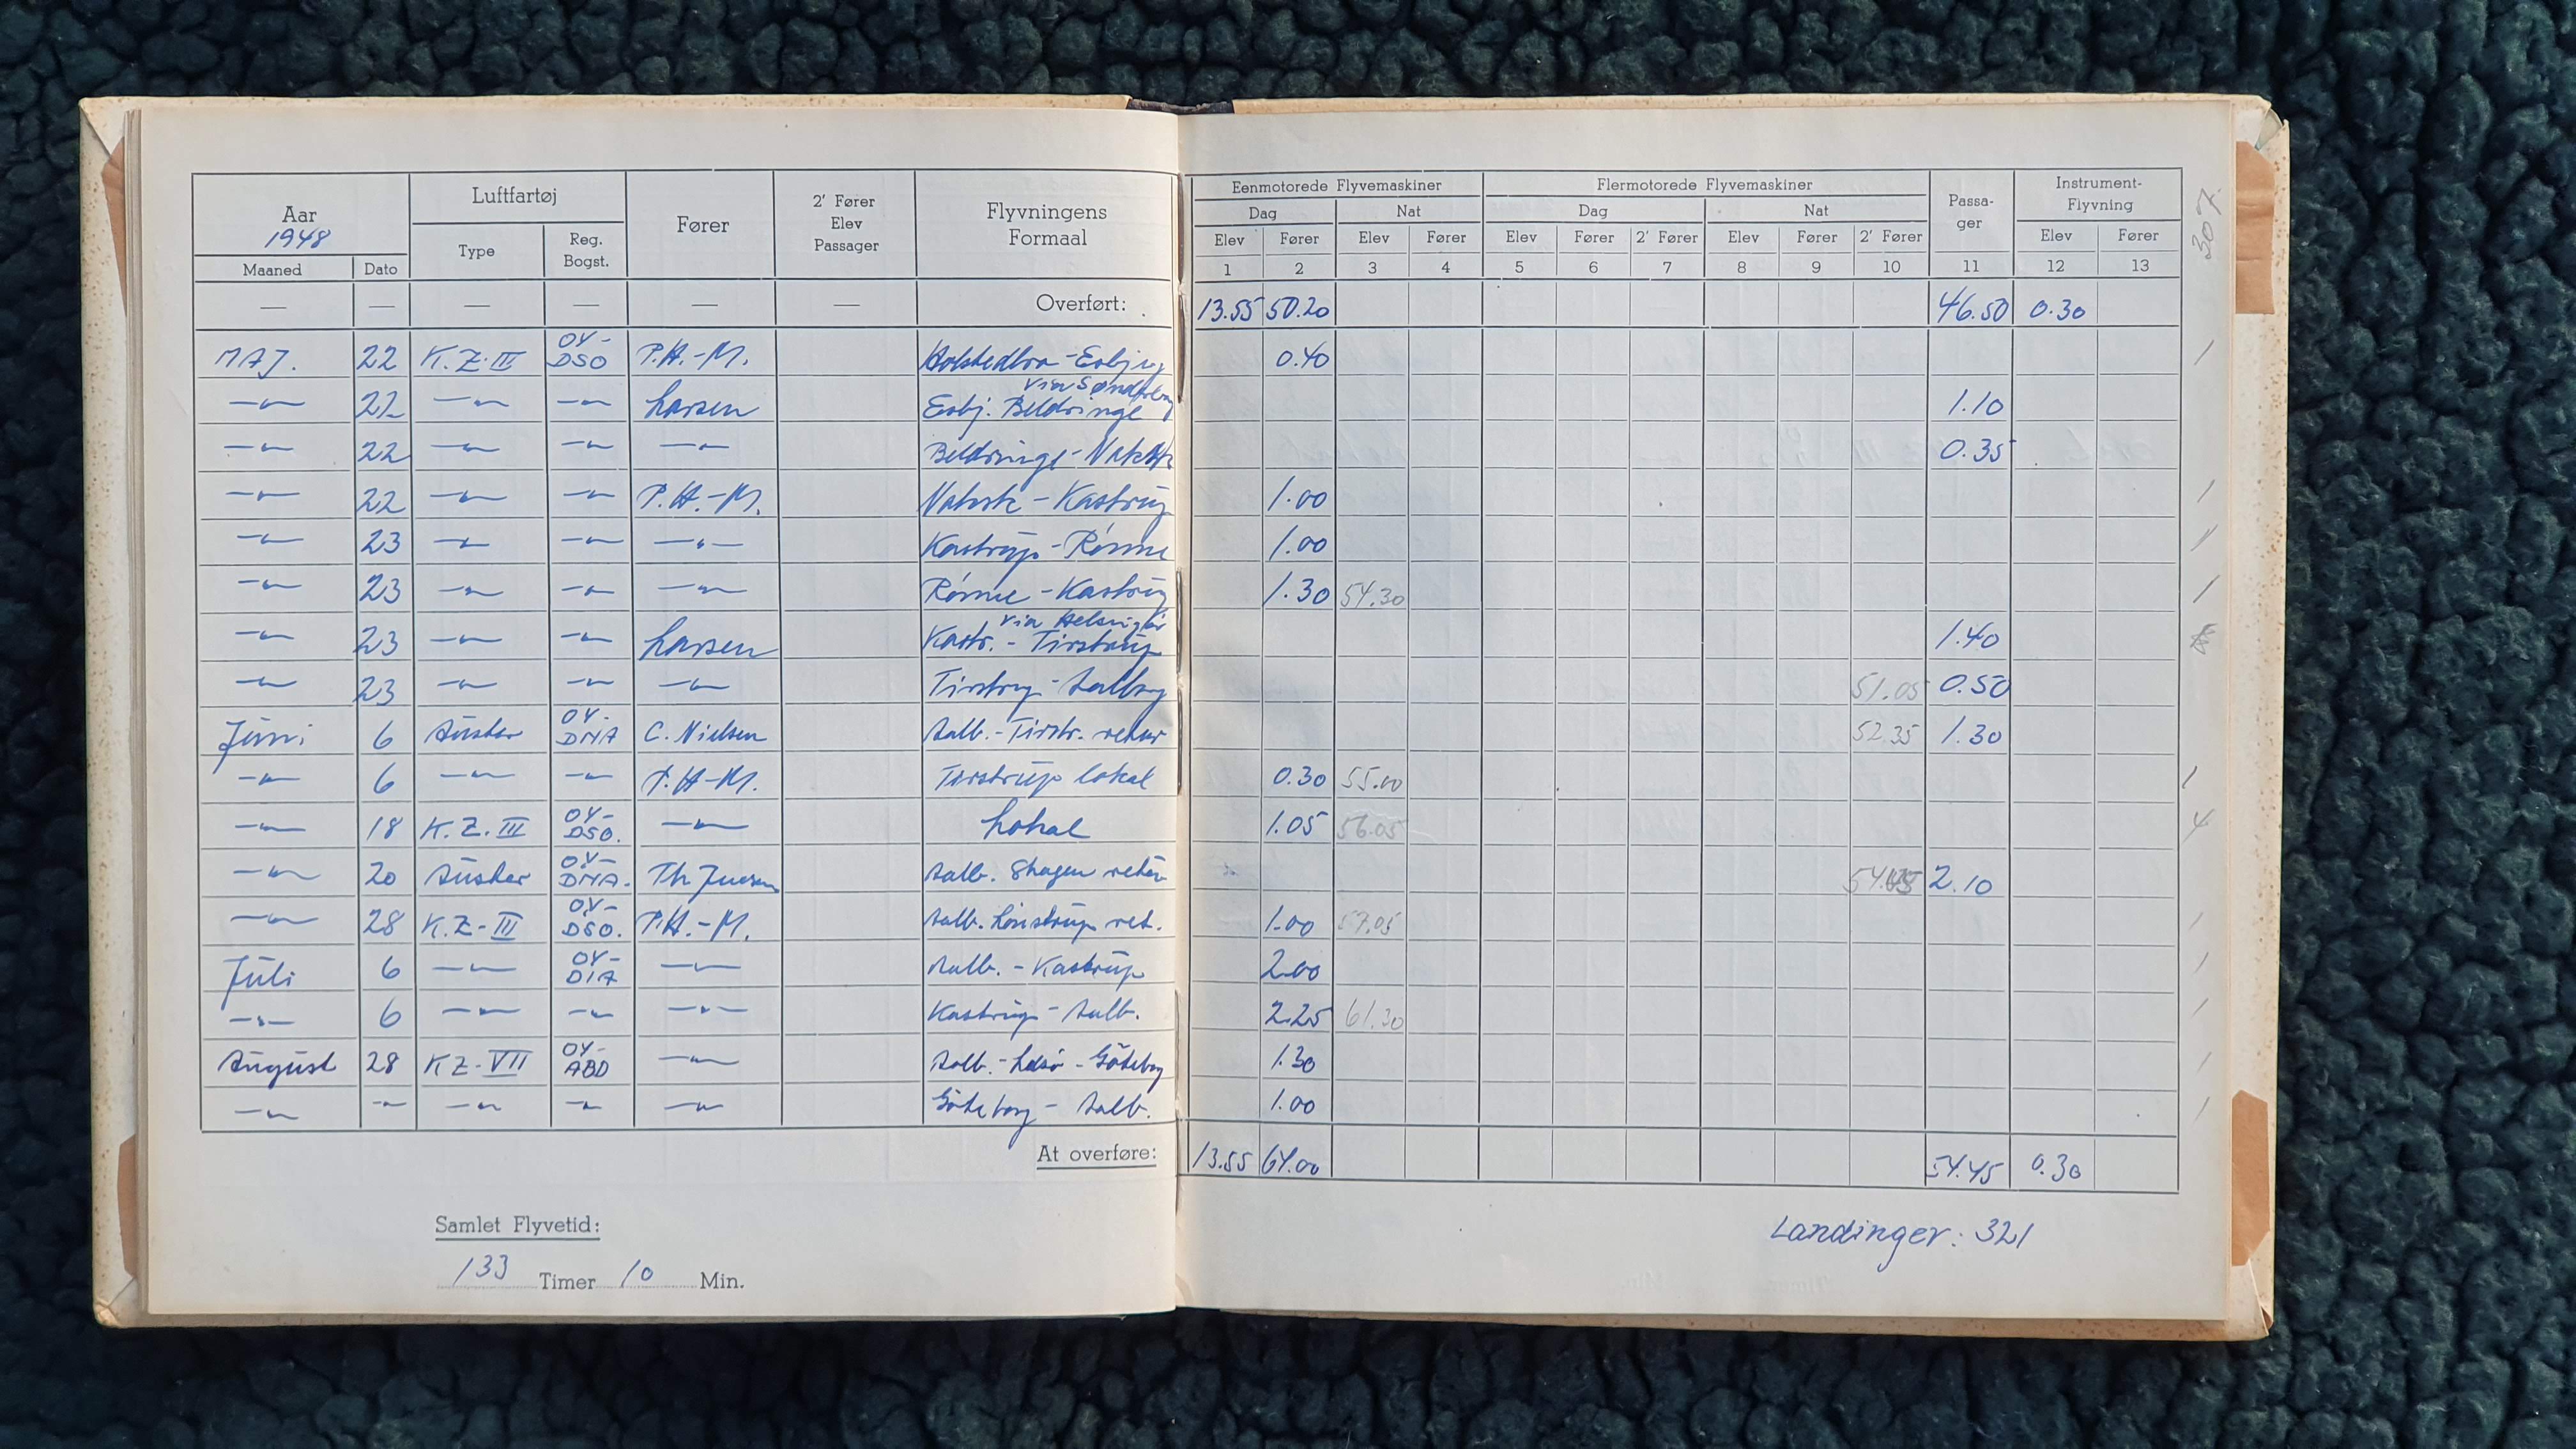 Aar
1948
Maaned Dato
Luftfartøj
Type
Reg.
Bogst.
Fører
2' Fører
Elev
Passager
Flyvningens
Formaal
Eenmotorede Flyvemaskiner
Dag Nat
Elev Fører Elev Fører
1 2 3 4
Flermotorede Flyvemaskiner
Dag Nat
Elev Fører 2' Fører Elev Fører 2' Fører
5 6 7 8 9 10
Passa-
ger
11
Instrument-
Flyvning
Elev Fører
12 13
307.
— — — — — — Overført: 13.55 50.20 46.50 0.30
MAJ. 22 K.Z. III OY-DSO P.H.-M. Esbjerg 0.40 /
—"— 22 —"— —"— Larsen Esbj. Beldringe via Sønderborg 1.10
—"— 22 —"— —"— —"— Beldringe - Naksk 0.35
—"— 22 —"— —"— P.H.-M. Naksk - Kastrup 1.00 /
—"— 23 —"— —"— —"— Kastrup - Rønne 1.00 /
—"— 23 —"— —"— —"— Rønne - Kastrup 1.30 54.30 /
—"— 23 —"— —"— Larsen Kastr. - Tirstrup via Helsingør 1.40
—"— 23 —"— —"— —"— Tirstrup - Aalborg 51.05 0.50
Juni 6 Auster OY-DNA C. Nielsen Aalb. - Tirstr. retur 52.35 1.30
—"— 6 —"— —"— P.H-M. Tirstrup lokal 0.30 55.00 /
—"— 18 K.Z. III OY-DSO. —"— Lokal 1.05 56.05 4
—"— 20 Auster OY-DNA. Th Aalb. Skagen retur 2.10
—"— 28 K.Z-III OY-DSO. P.H.-M. Aalb. Lønstrup ret. 1.00 57.05 /
Juli 6 —"— OY-DIA —"— Aalb. - Kastrup 2.00 /
—"— 6 —"— —"— —"— Kastrup - Aalb. 2.25 61.30 /
August 28 KZ-VII OY-ABD —"— Aalb. - Læsø - Göteborg 1.30 /
—"— —"— —"— —"— —"— Göteborg - Aalb. 1.00 /
At overføre: 13.55 64.00 54.45 0.30
Samlet Flyvetid:
133 Timer 10 Min.
Landinger: 321